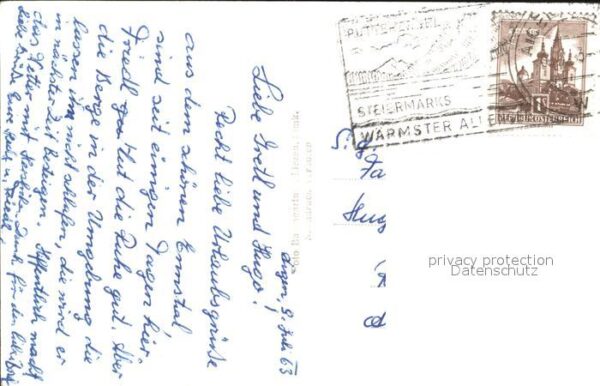 PUTTERERSEE
STEIERMARKS
WÄRMSTER ALPEN
REPUBLIK ÖSTERREICH
9. Juli 63
Liebe Gretl und Hugo!
Recht liebe Urlaubsgrüße
aus dem schönen Ennstal,
sind seit einigen Tagen hier.
Friedl tut die Ruhe gut. Aber
die Berge in der Umgebung die
lassen ihn nicht schlafen, die wird er
in nächster Zeit besteigen. Hoffentlich macht
das Wetter mit. Herzlichen Dank für den
liebe Grüße Eure u. Friedl
Fa
Hug
privacy protection
Datenschutz